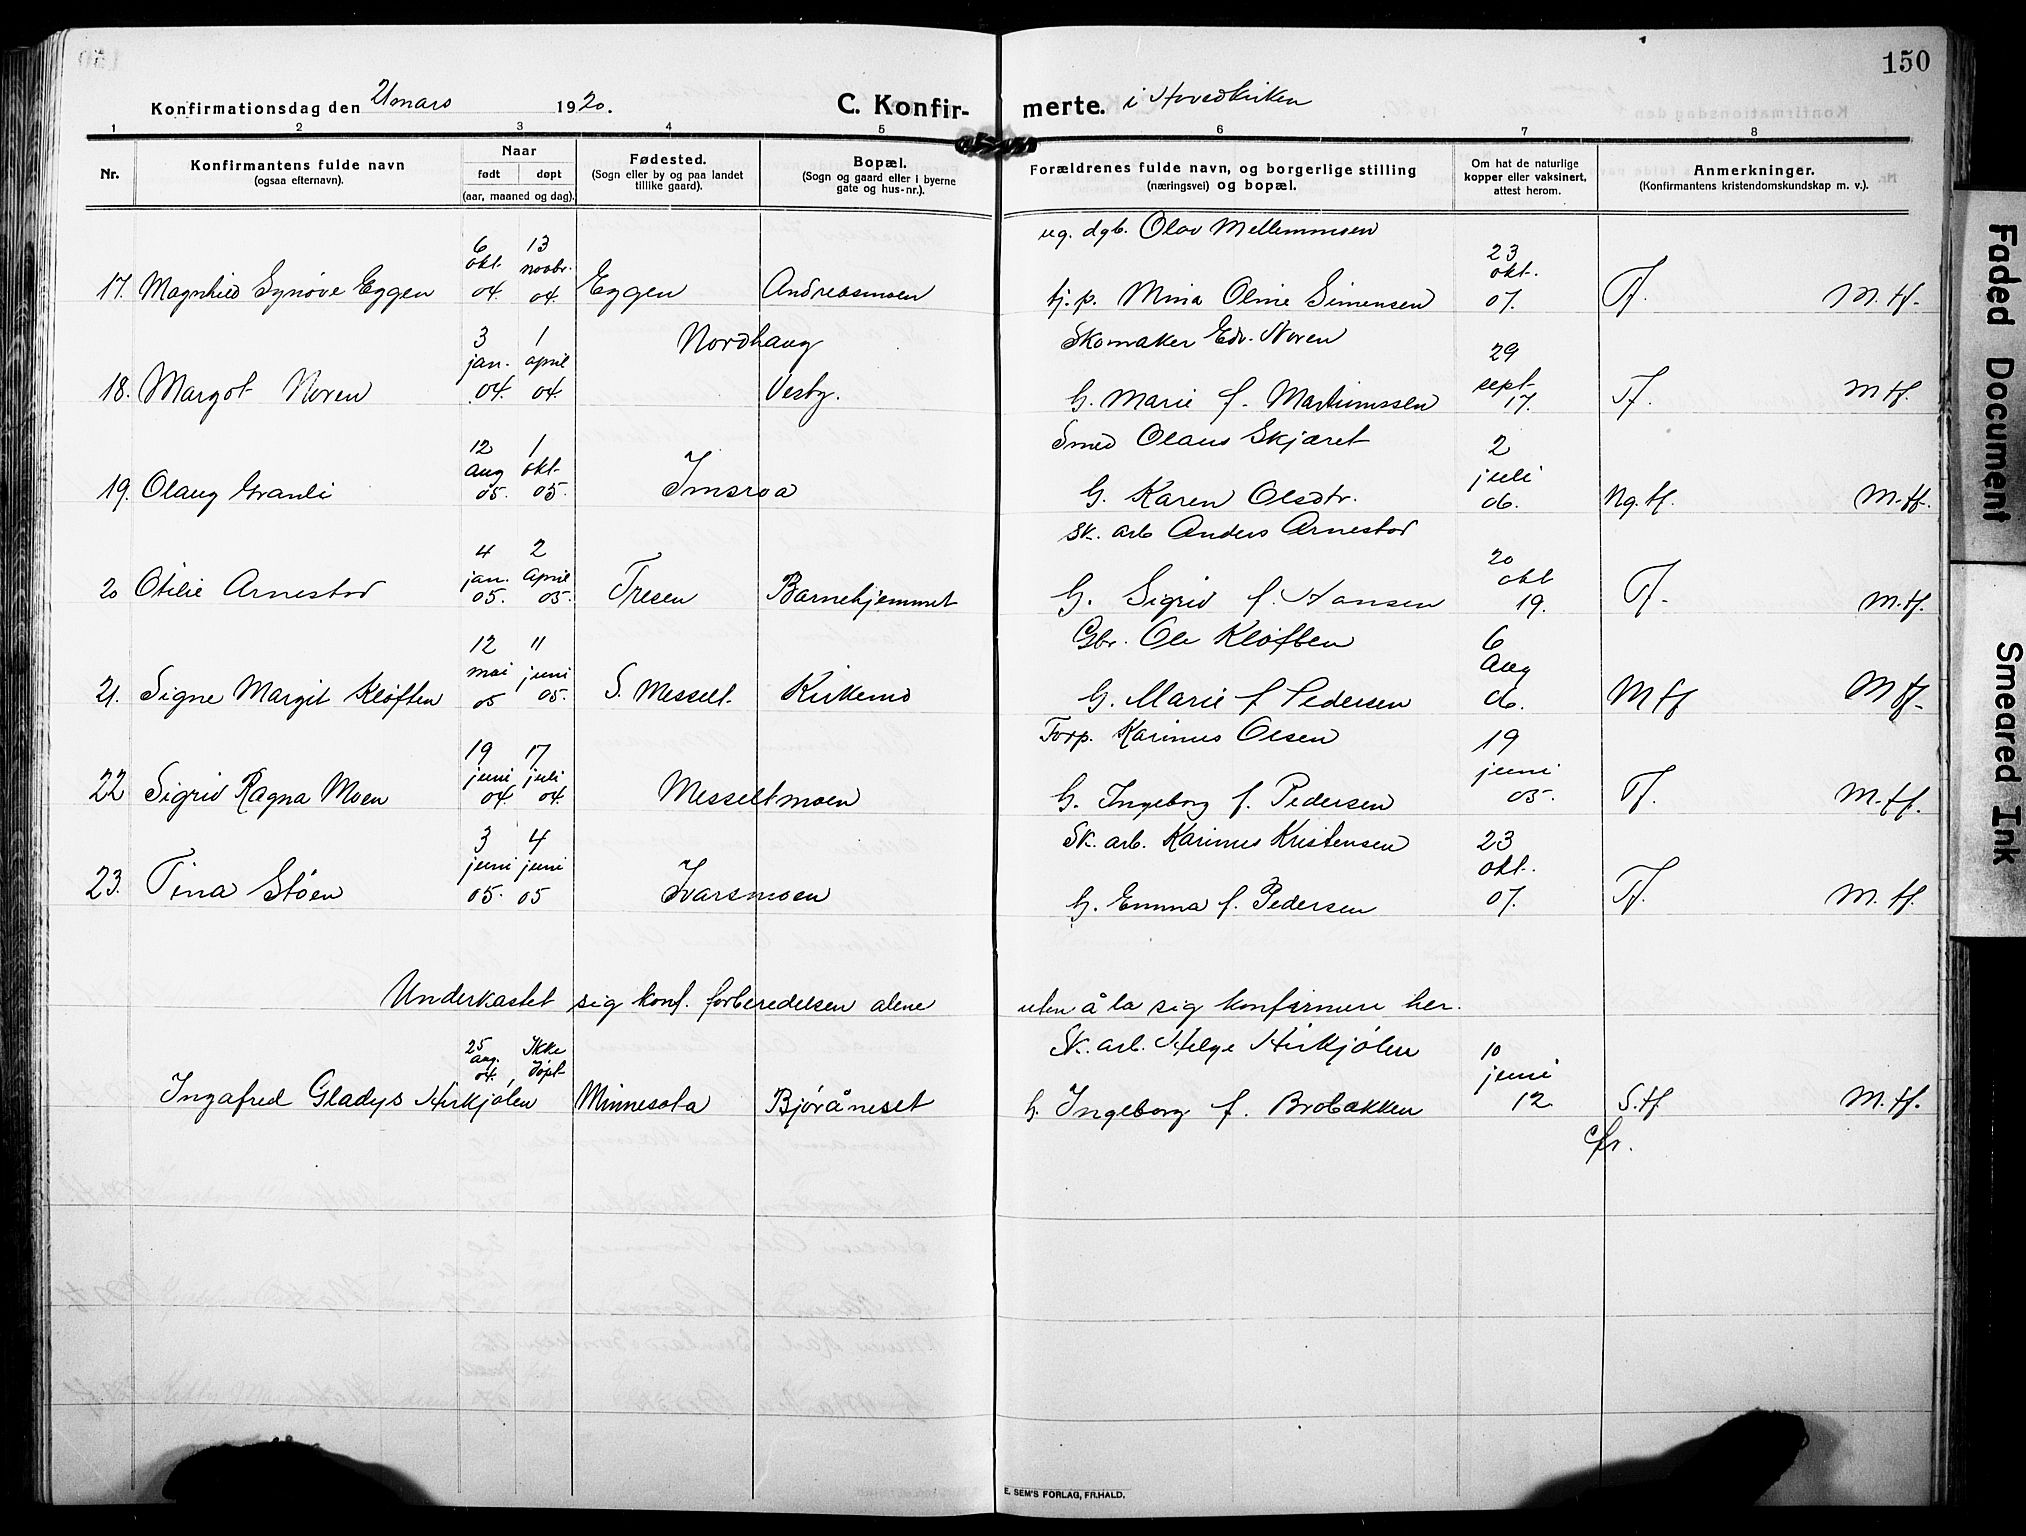 150
Konfirmationsdag den 21 mars 1920. C. Konfirmerte. i Hovedkirken
1 2 3 4 5 6 7 8
Nr. Konfirmantens fulde navn (ogsaa efternavn). Naar født døpt (aar, maaned og dag). Fødested. (Sogn eller by og paa landet tillike gaard). Bopæl. (Sogn og gaard eller i byerne gate og hus-nr.). Forældrenes fulde navn, og borgerlige stilling (næringsvei) og bopæl. Om hat de naturlige kopper eller vaksinert, attest herom. Anmerkninger. (Konfirmantens kristendomskundskap m. v.).
ug. dgb. Olav Mellemmoen
17. Magnhild Synøve Eggen 6 okt. 04. 13 novbr. 04. Eggen Andreasmoen tj. p. Mina Oline Simensen 23 okt. 07. Tf. M. tf.
Skomaker Edv. Noren
18. Margot Noren 3 jan. 04. 1 april 04. Nordhaug Vesby. G. Marie f. Martinussen 29 sept. 17. Tf. M tf.
Smed Olaus Skjæret
19. Olaug Granli 12 aug 05. 1 okt. 05. Imsroa G. Karen Olsdtr. 2 juli 06. Ng. tf. M. tf.
Sk. arb Anders Arnestad
20 Otilie Arnestad 4 jan. 05. 2 april 05. Tresen Barnehjemmet G. Sigrid f. Hansen 20 okt 19. Tf. M. tf.
Gbr. Ole Kløften
21. Signe Margit Kløften 12 mai 05 11 juni 05. S. Messelt. Kirkemo G. Marie f Pedersen 6 Aug 06. M tf M tf.
Forp. Karinus Olsen
22 Sigrid Ragna Moen 19 juni 04. 17 juli 04. Messeltmoen G. Ingeborg f. Pedersen 19 juni 05. Tf. M. tf.
Sk. arb. Karinus Kristensen
23. Tina Støen 3 juni 05. 4 juni 05 Ivarsmoen G. Emma f. Pedersen 23 okt. 07. Tf. M. tf.
Underkastet sig konf. forberedelsen alene uten å la sig konfirmere her.
Sk. arb. Helge Hirkjølen
Ingafred Gladys Hirkjølen 25 aug. 04. Ikke døpt Minnesota Bjøråneset G. Ingeborg f. Brobakken 10 juni 12 S. tf M. tf.
cfr.
E. SEM'S FORLAG, FR.HALD.
Faded Document
Smeared Ink